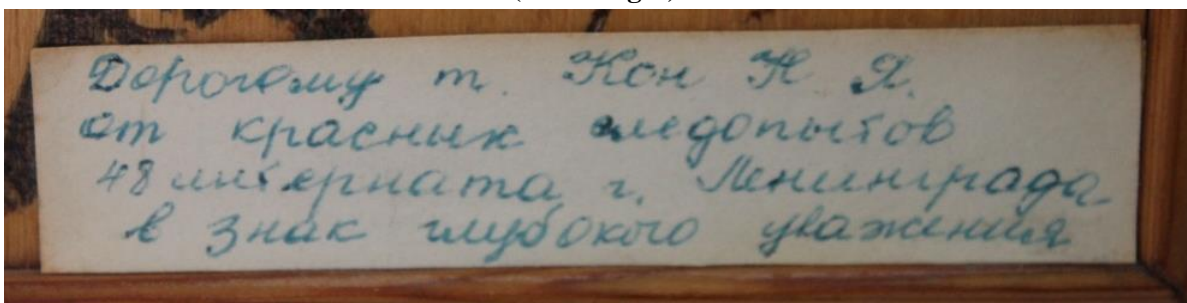 Дорогому т. Кон Н Я.
от красных следопытов
48 интерната г. Ленинграда
в знак глубокого уважения